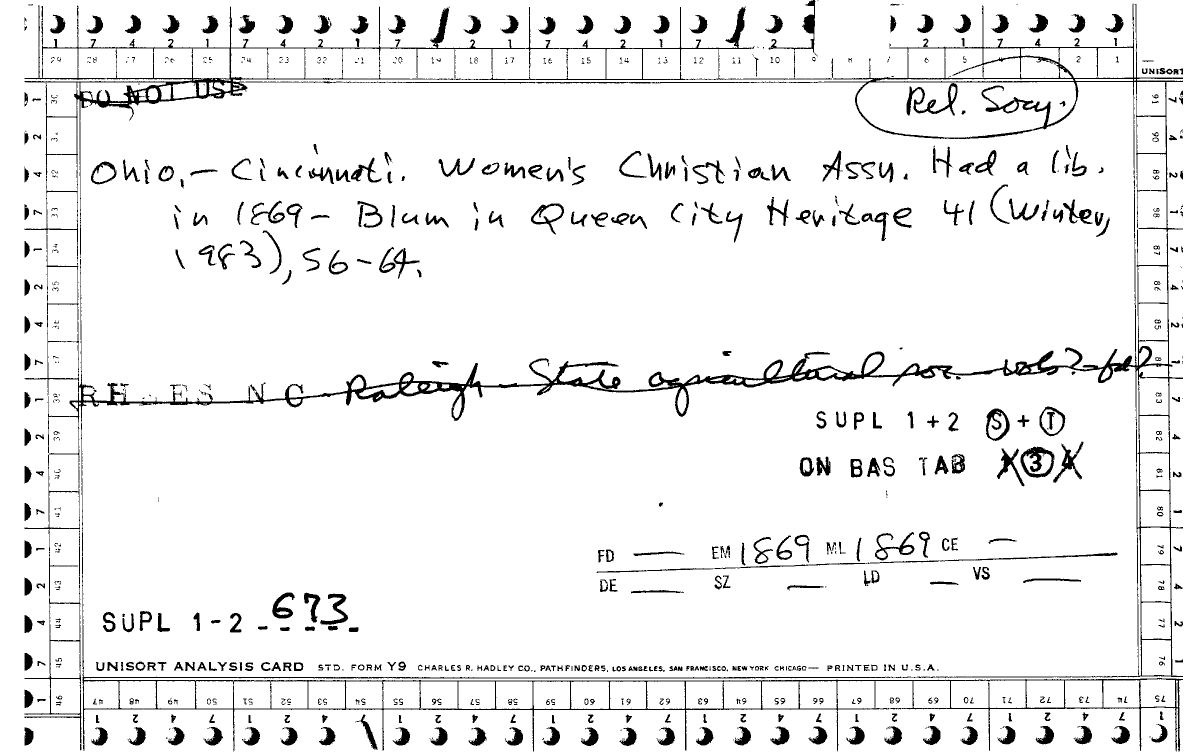 7 4 2 1 7 4 2 1 7 4 2 1 7 2 1 7 4 2 1 7 4 2 2 1 7 4 2 1
29 28 27 26 25 24 23 22 21 20 19 18 17 16 15 14 13 12 11 10 9 8 7 6 5 4 3 2 1
UNISORT
DO NOT USE
Rel. Socy.
Ohio.- Cincinnati. Women's Christian Assn. Had a lib.
in 1869 - Blum in Queen City Heritage 41 (Winter,
1983), 56-64.
RH ES NC Raleigh - State agricultural soc. vols?
SUPL 1+2 S + T
ON BAS TAB 1 3 4
FD — EM 1869 ML 1869 CE —
DE — SZ — LD — VS —
SUPL 1-2 - 673 -
UNISORT ANALYSIS CARD STD. FORM Y9 CHARLES R. HADLEY CO., PATHFINDERS, LOS ANGELES, SAN FRANCISCO, NEW YORK CHICAGO— PRINTED IN U.S.A.
47 48 49 50 51 52 53 54 55 56 57 58 59 60 61 62 63 64 65 66 67 68 69 70 71 72 73 74 75